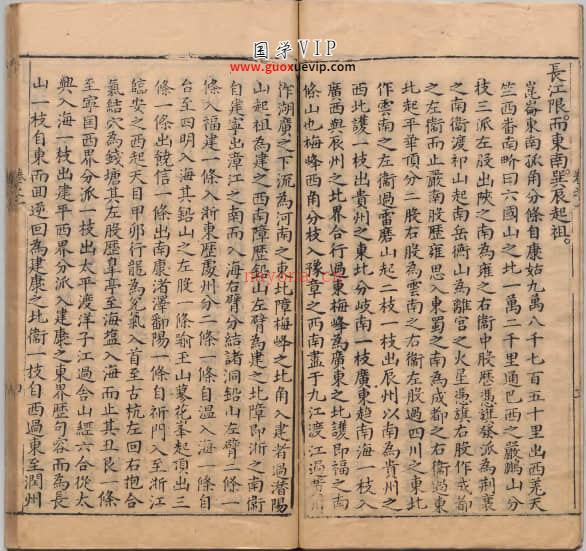 国学VIP
www.guoxuevip.com
長江限而東南巽辰起祖。
崑崙東南孤角分條自康姑九萬八千七百五十里出西羌天
竺西番南畍曰六國山之北一萬二千里通巴西之嚴鵬山分
枝三派左股出陜之南為雍之右衛中股歷憑進發派為荆襄
之南衛渡祁山起南岳衡山為離宮之火星憑右股作成都
之左衛而止嚴南股歷雍思入東蜀之南為成都之右衛過東
北起平華頂分二股右股為雲南之右衛左股過四川之東北
作雲南之左衛過雷磨山起二枝一枝出辰州以南為貴州之
西北護一枝出貴州之東北分岐南一枝廣東趨南海一枝入
廣西與辰州之北界合行過東梅峰為廣東之北護即福之南
條山也梅峰西角分枝入豫章之西南盡于九江渡江過
作湖廣之下流為河南之東北障梅峰之北角入建者過潛陽
山起祖為建之西南障歷鉛山左臂為建之北障即浙之南衛
自建寧出漳江之南而入海右臂分結諸洞鉛山左臂二條一
條入福建一條入浙東歷處州分二條一條自温入海一條自
台至四明入海其鉛山之左股一條喻玉山蓼花峯起頂出三
條一條出競信一條出南康渚澤鄱陽一條自祈門入至浙江
臨安之西起天目甲夘行龍為兖氣入首至古坑左回右抱合
氣結穴為錢塘其左股歷臯亭至海盬入海而止其丑艮一條
至寧国西界分派一枝出太平渡洋子江過合山經六合從太
興入海一枝出建平西界分派入建康之東界歷句容而為長
山一枝自東而囬逆回為建康之北衛一枝自西過東至潤州